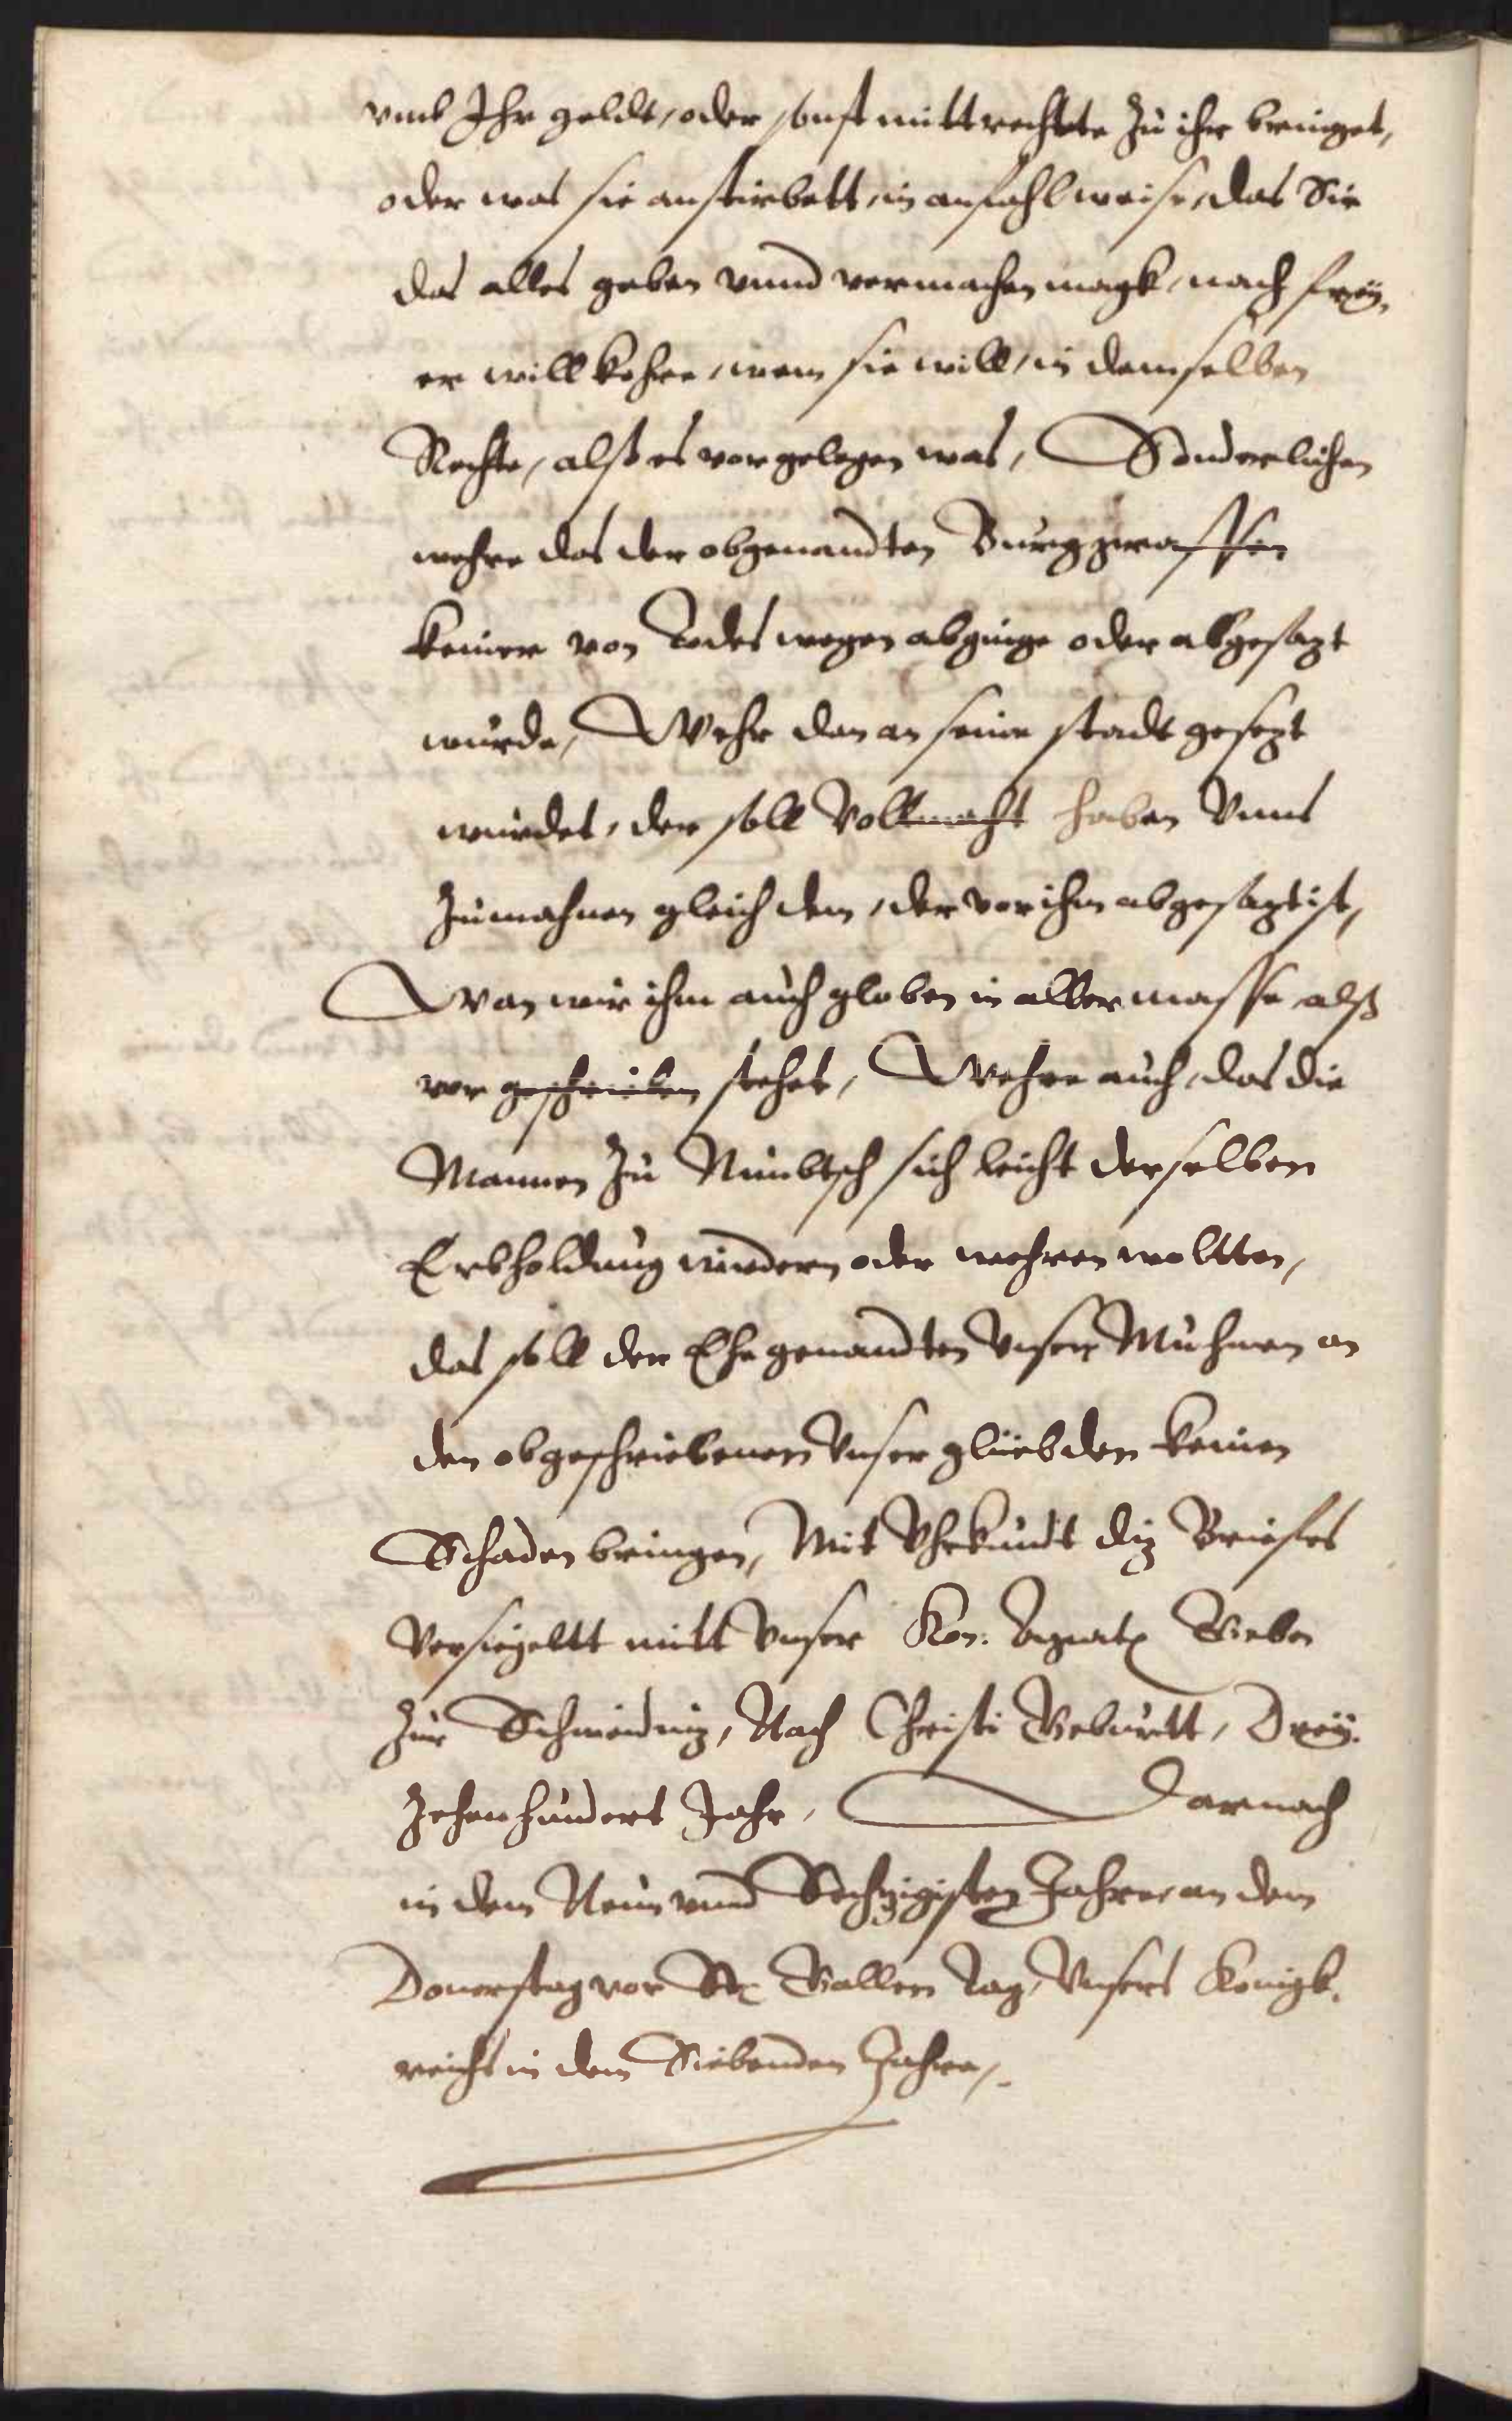 vmb Ihr geldt, oder sonst mitt rechtte zu ihr bringet,
oder was sie anstirbett, in anfahl weise, das Sie
das alles geben vnnd vermachen magk, nach frey,
er willkohre, wem sie will, in demselben
Rechte, alß es vor gelegen was, Sonderlichen
wehre das der obgenandten Burggraffen
keiner von Todes wegen abginge oder abgesazt
wurde, Wehr den an seine stadt gesezt
wurdet, der soll Vollmacht haben Vnns
zumahnen gleich dem, der vor ihm abgesazt ist,
Wan wir ihm auch globen in aller masse alß
vor geschrieben stehet, Wehre auch, das die
Mannen zu Nimbtsch sich leicht derselben
Erbholdung widern oder wehren woltten,
das soll der Ehegenandten Vnser Muhmen an
den obgeschriebenen Vnser glübden keinen
Schaden bringen, Mit Vhrkundt diz Briefes
Versiegeltt mitt Vnser Kön: Geben
zur Schweidniz, Nach Christi Geburtt, Drey.
zehenhundert Jahr, Darnach
in dem Neun vnnd Sechzigisten Jahre, an dem
Donerstag vor St. Gallen Tag, Vnsers Königk.
reichs in dem Siebenden Jahre,.